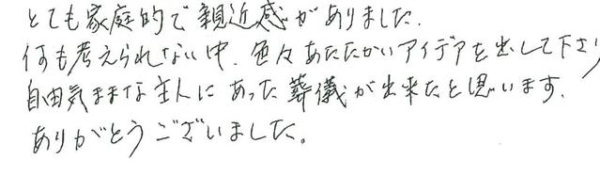 とても家庭的で親近感がありました.
何も考えられない中、色々あたたかいアイデアを出して下さり
自由気ままな主人にあった葬儀が出来たと思います.
ありがとうございました。